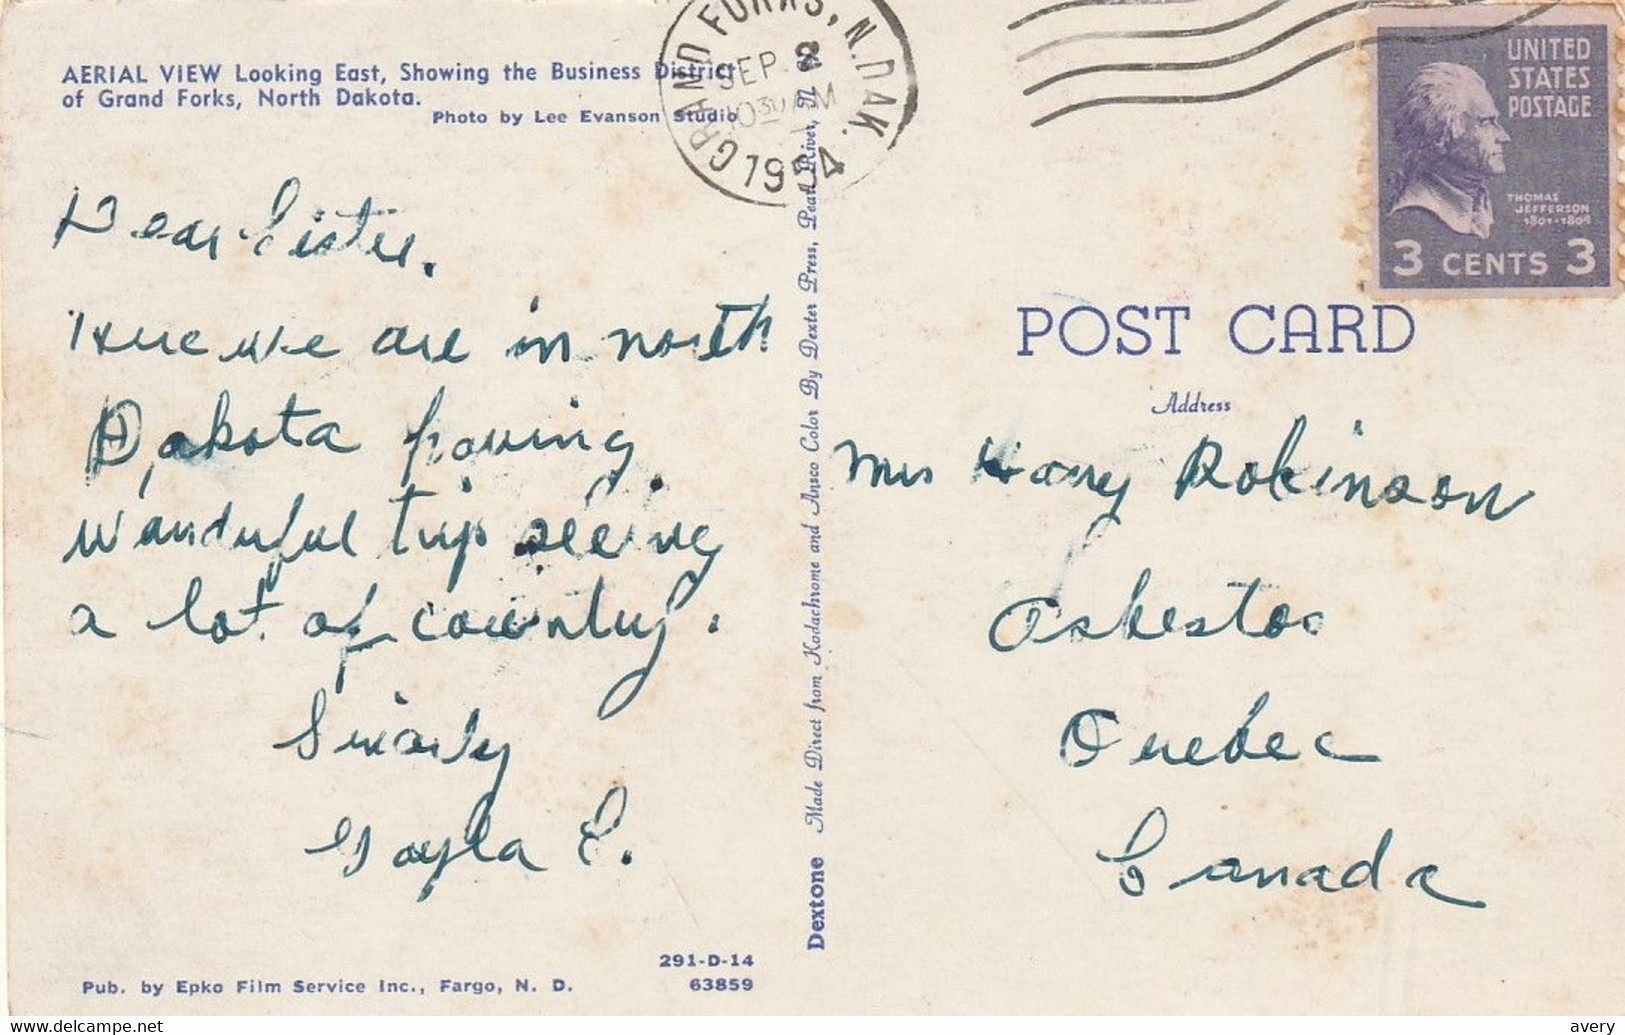 AERIAL VIEW Looking East, Showing the Business District
of Grand Forks, North Dakota.
Photo by Lee Evanson Studio
GRAND FORKS, N. DAK.
SEP
1030 AM
1954
UNITED
STATES
POSTAGE
THOMAS
JEFFERSON
1801-1809
3 CENTS 3
Dear Sister.
Here we are in north
Dakota haveing
wonderful trip seeing
a lot of country.
Gayla E.
POST CARD
Address
Mrs Harry Robinson
Asbestos
Quebec
Canada
Dextone Made Direct from Kodachrome and Ansco Color By Dexter Press, Pearl River, N
291-D-14
Pub. by Epko Film Service Inc., Fargo, N. D. 63859
www.delcampe.net
avery